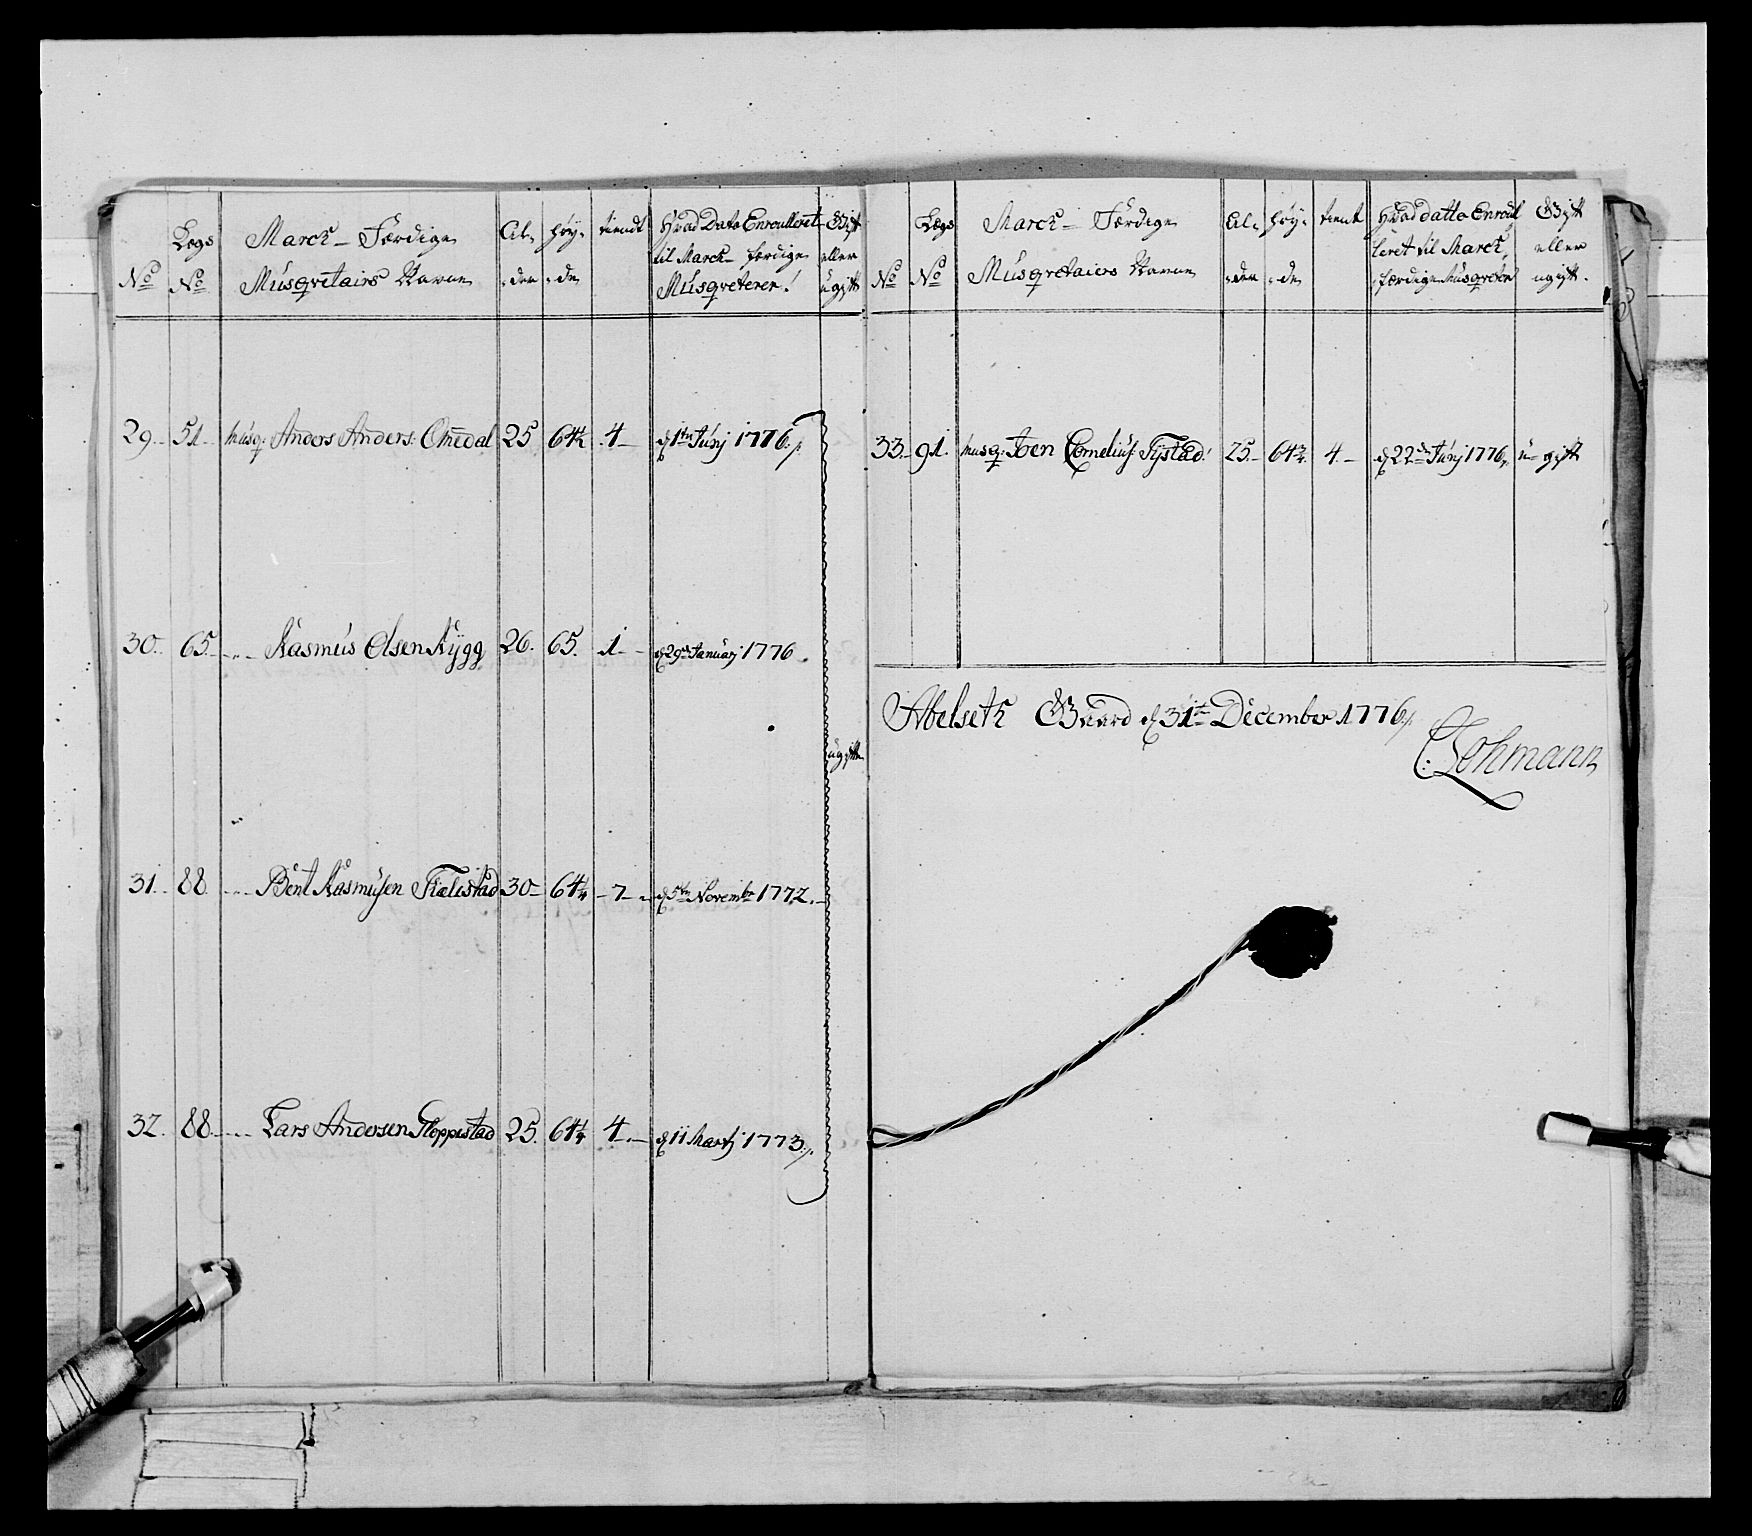 No
Legs No
March- Færdige
Musqvetairs Navne
Al-
-der
høy-
-de
tiendt
Hvad Dato Enroulleret
til March- færdige
Musqveterer!
Gift
eller
ugift
29. 51. musq: Anders Anders: Omedal 25 64½ 4 d 1ten Junj 1776
30. 65. Rasmus Olsen Rygg 26. 65. 1. d 29de Januarj 1776.
ugifte
31. 88. Bent Rasmusen 30 64¼ 7 d 5te Novembr 1772.
32. 88. Lars Andersen Gloppestad 25. 64¼ 4. d 11 Martj 1773.
No
Legs
No
March- Færdige
Musqvetairs Navne
Al-
-der
høy-
-de
tient
Hvad datto Enroul
leret til March
færdige Musqveterer
Gift
eller
ugift.
33. 91. musq: Joen Cornelius: Tystad 25. 64¾ 4. d 22de Junj 1776. u- gift
Abelseth Gaard d 31te December 1776
C: Lohmann